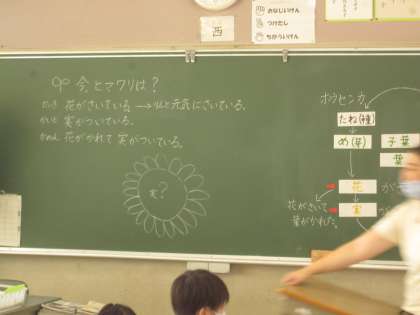 西
おなじいけん
つけたし
ちがういけん
今ヒマワリは？
花がさいている。→ 元気にさいている。
実がついている。
花がかれて実がついている。
実？
ホウセンカ
たね(種)
め(芽)
子葉
葉
花
花がさいて
葉がかれた。
実